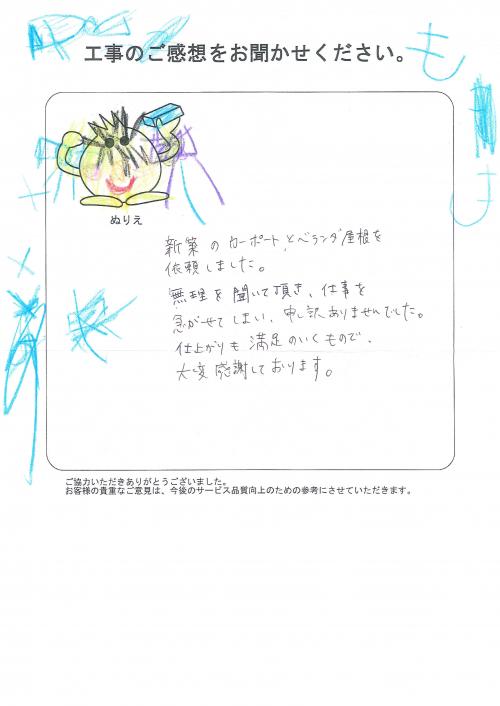 工事のご感想をお聞かせください。
も
ぬりえ
新築のカーポートとベランダ屋根を
依頼しました。
無理を聞いて頂き、仕事を
急がせてしまい、申し訳ありませんでした。
仕上がりも満足のいくもので、
大変感謝しております。
ご協力いただきありがとうございました。
お客様の貴重なご意見は、今後のサービス品質向上のための参考にさせていただきます。